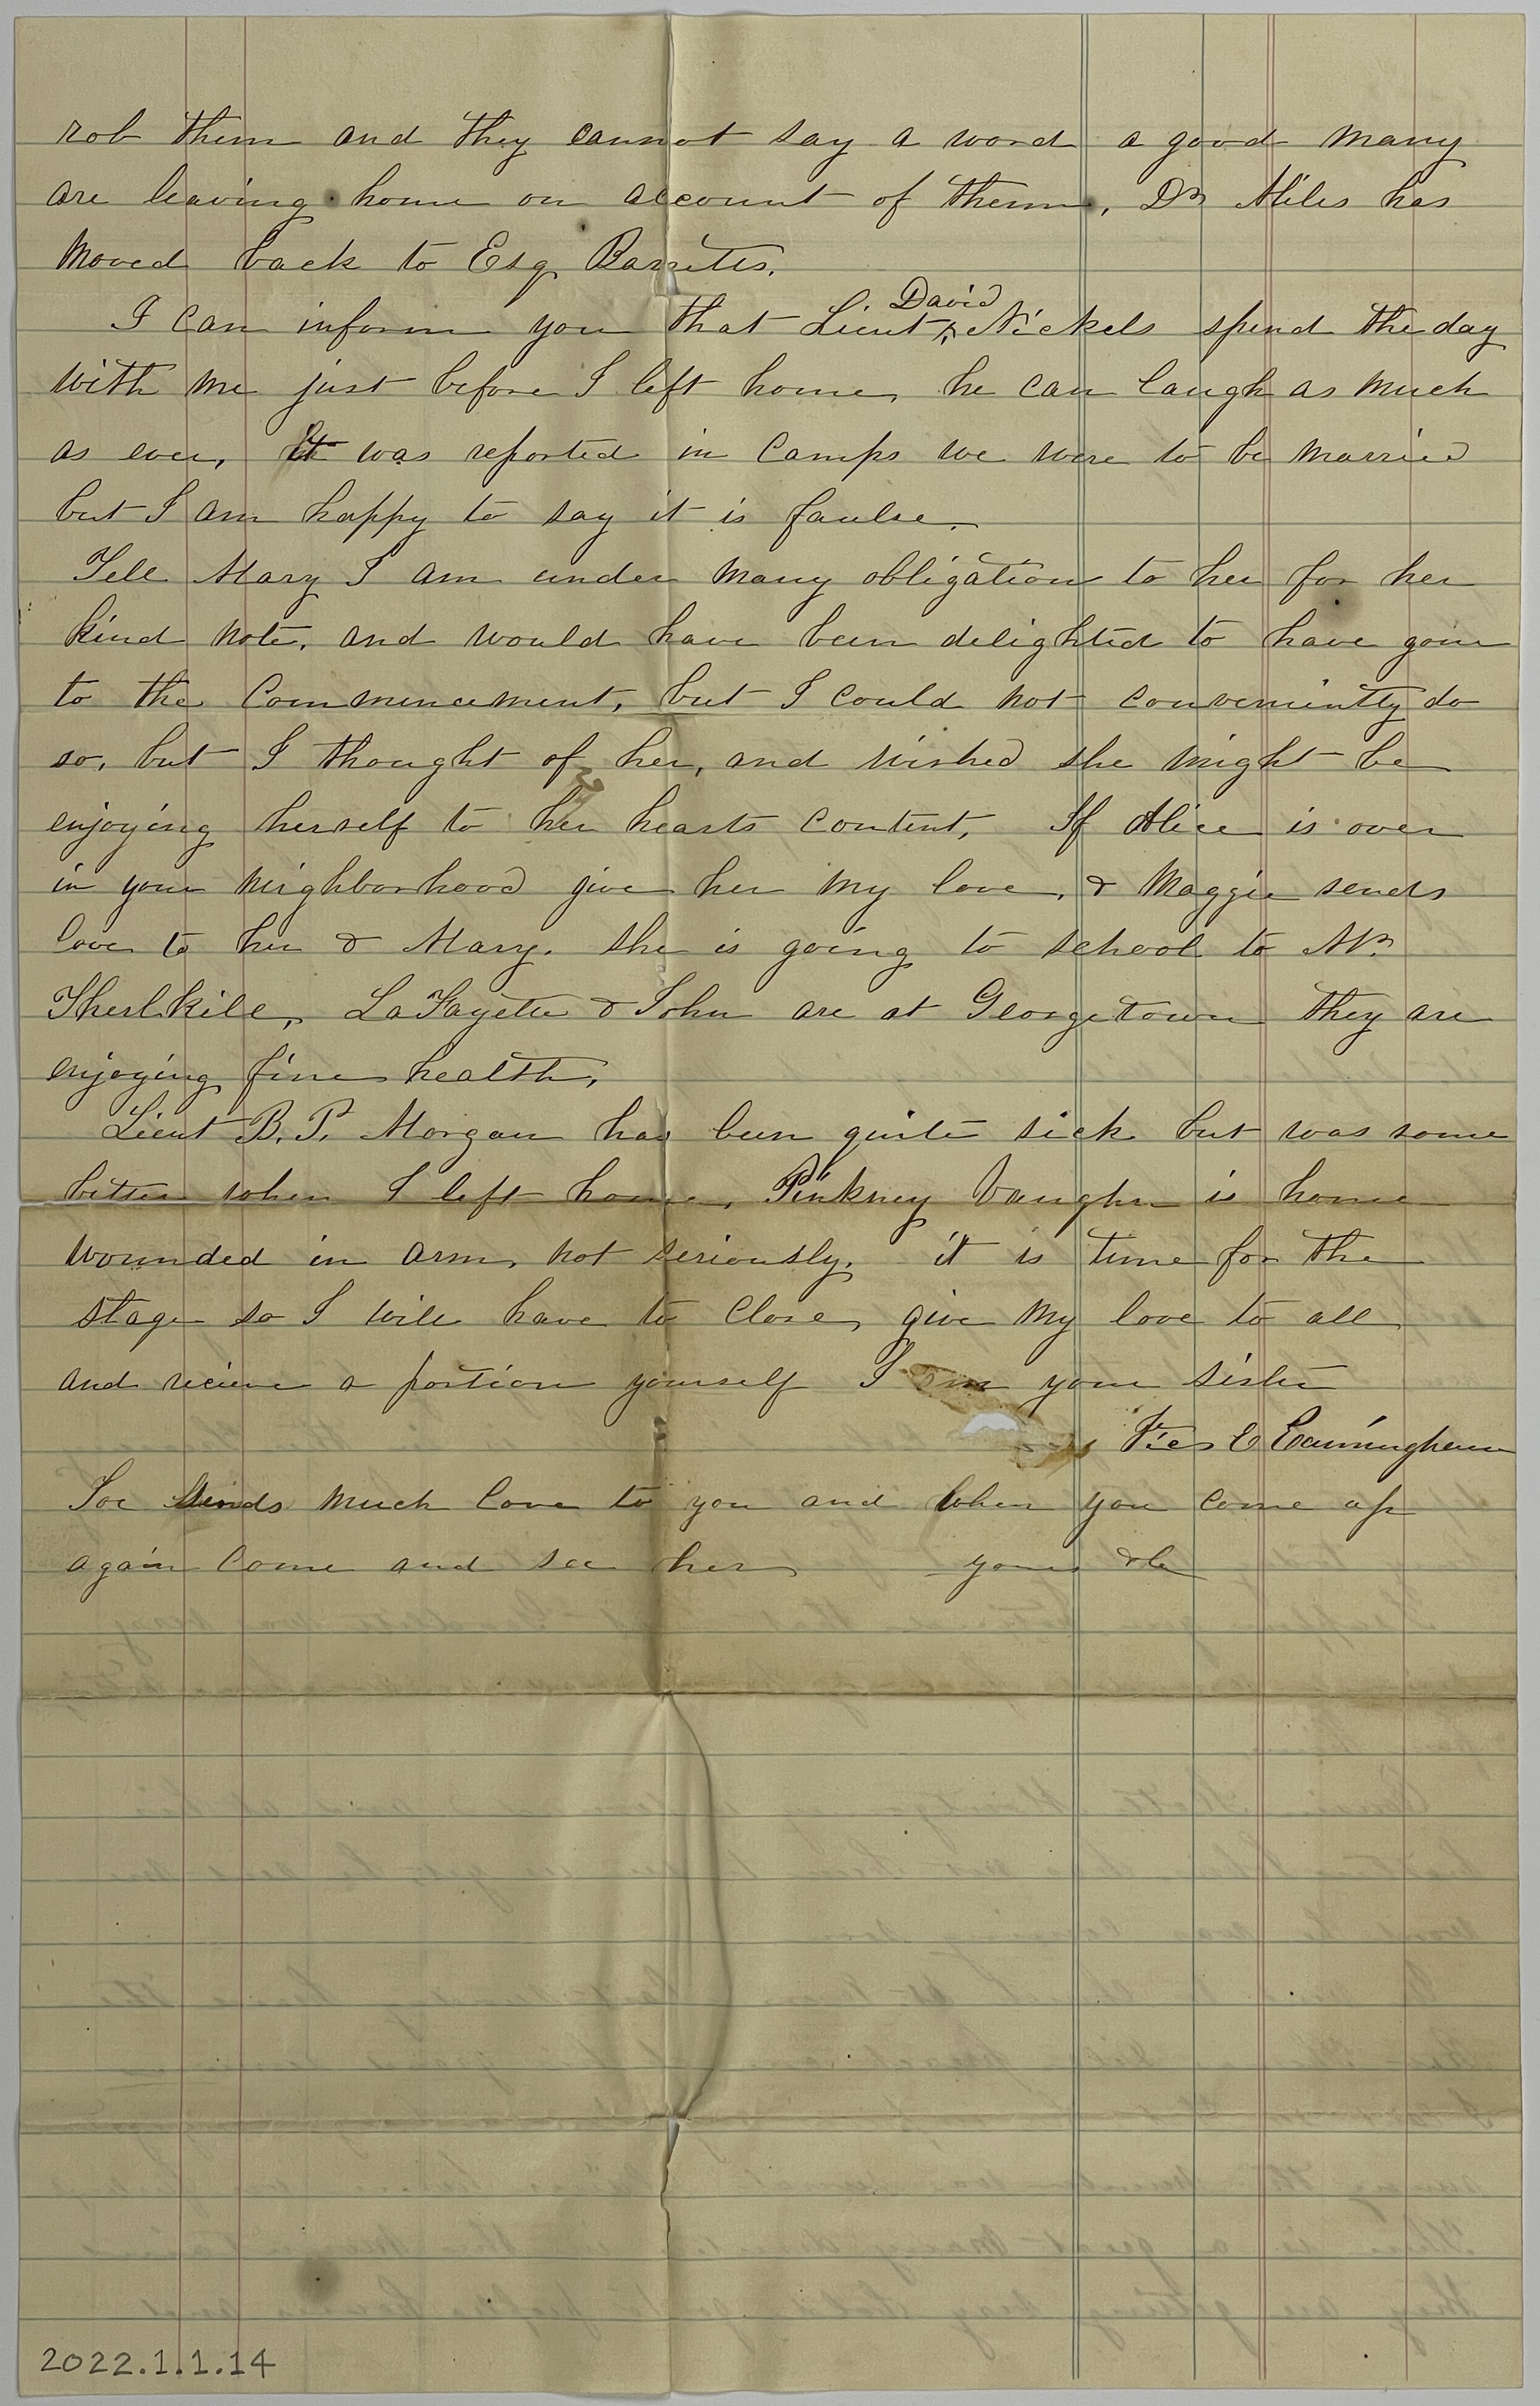 rob them and they cannot say a word a good many
are leaving home on account of them, Dr Miles has
moved back to Esq Barretts.
David
I can inform you that Lieut ^ Nickels spend the day
with me just before I left home, he can laugh as much
as ever, It was reported in camps we were to be married
but I am happy to say it is faulse.
Tell Mary I am under many obligations to her for her
kind note, and would have been delighted to have gone
to the Commencement, but I could not conveniently do
so, but I thought of her, and wished she might be
enjoying herself to her hearts content, If Alice is over
in your neighborhood give her my love, & Maggie sends
love to her & Mary. she is going to school to Mr.
Therlkile, LaFayette & John are at Georgetown they are
enjoying fine health,
Lieut B. P. Morgan has been quite sick but was some
better when I left home, Pinkney Vaughn is home
wounded in arm, not seriously, it is time for the
stage so I will have to close, give my love to all
and recieve a portion yourself I am your sister
E Cunningham
Joe sends much love to you and when you come up
again come and see her yours &c
2022.1.1.14